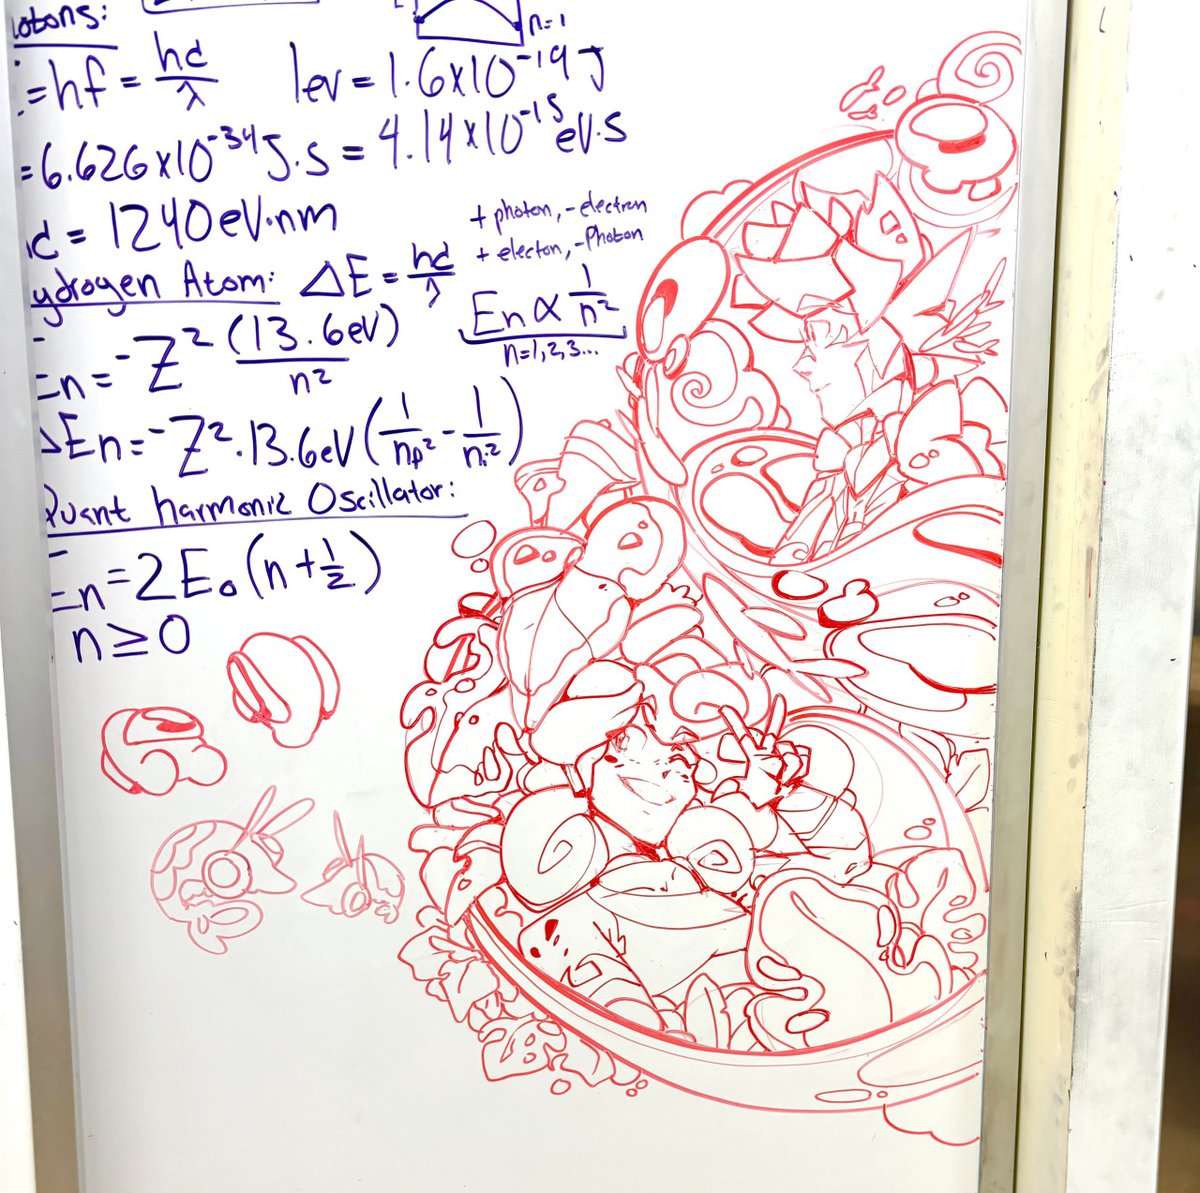 otons:
n=1
=hf = hc/λ 1ev = 1.6x10^-19 J
=6.626x10^-34 J.s = 4.14x10^-15 eV.s
c = 1240eV.nm
+ photon, - electron
+ electon, - Photon
ydrogen Atom: ΔE = hc/λ
En ∝ 1/n^2
n=1,2,3...
n = -Z^2 (13.6eV)/n^2
ΔEn = -Z^2.13.6eV (1/nf^2 - 1/ni^2)
Quant harmonic Oscillator:
n = 2E₀ (n + 1/2)
n ≥ 0